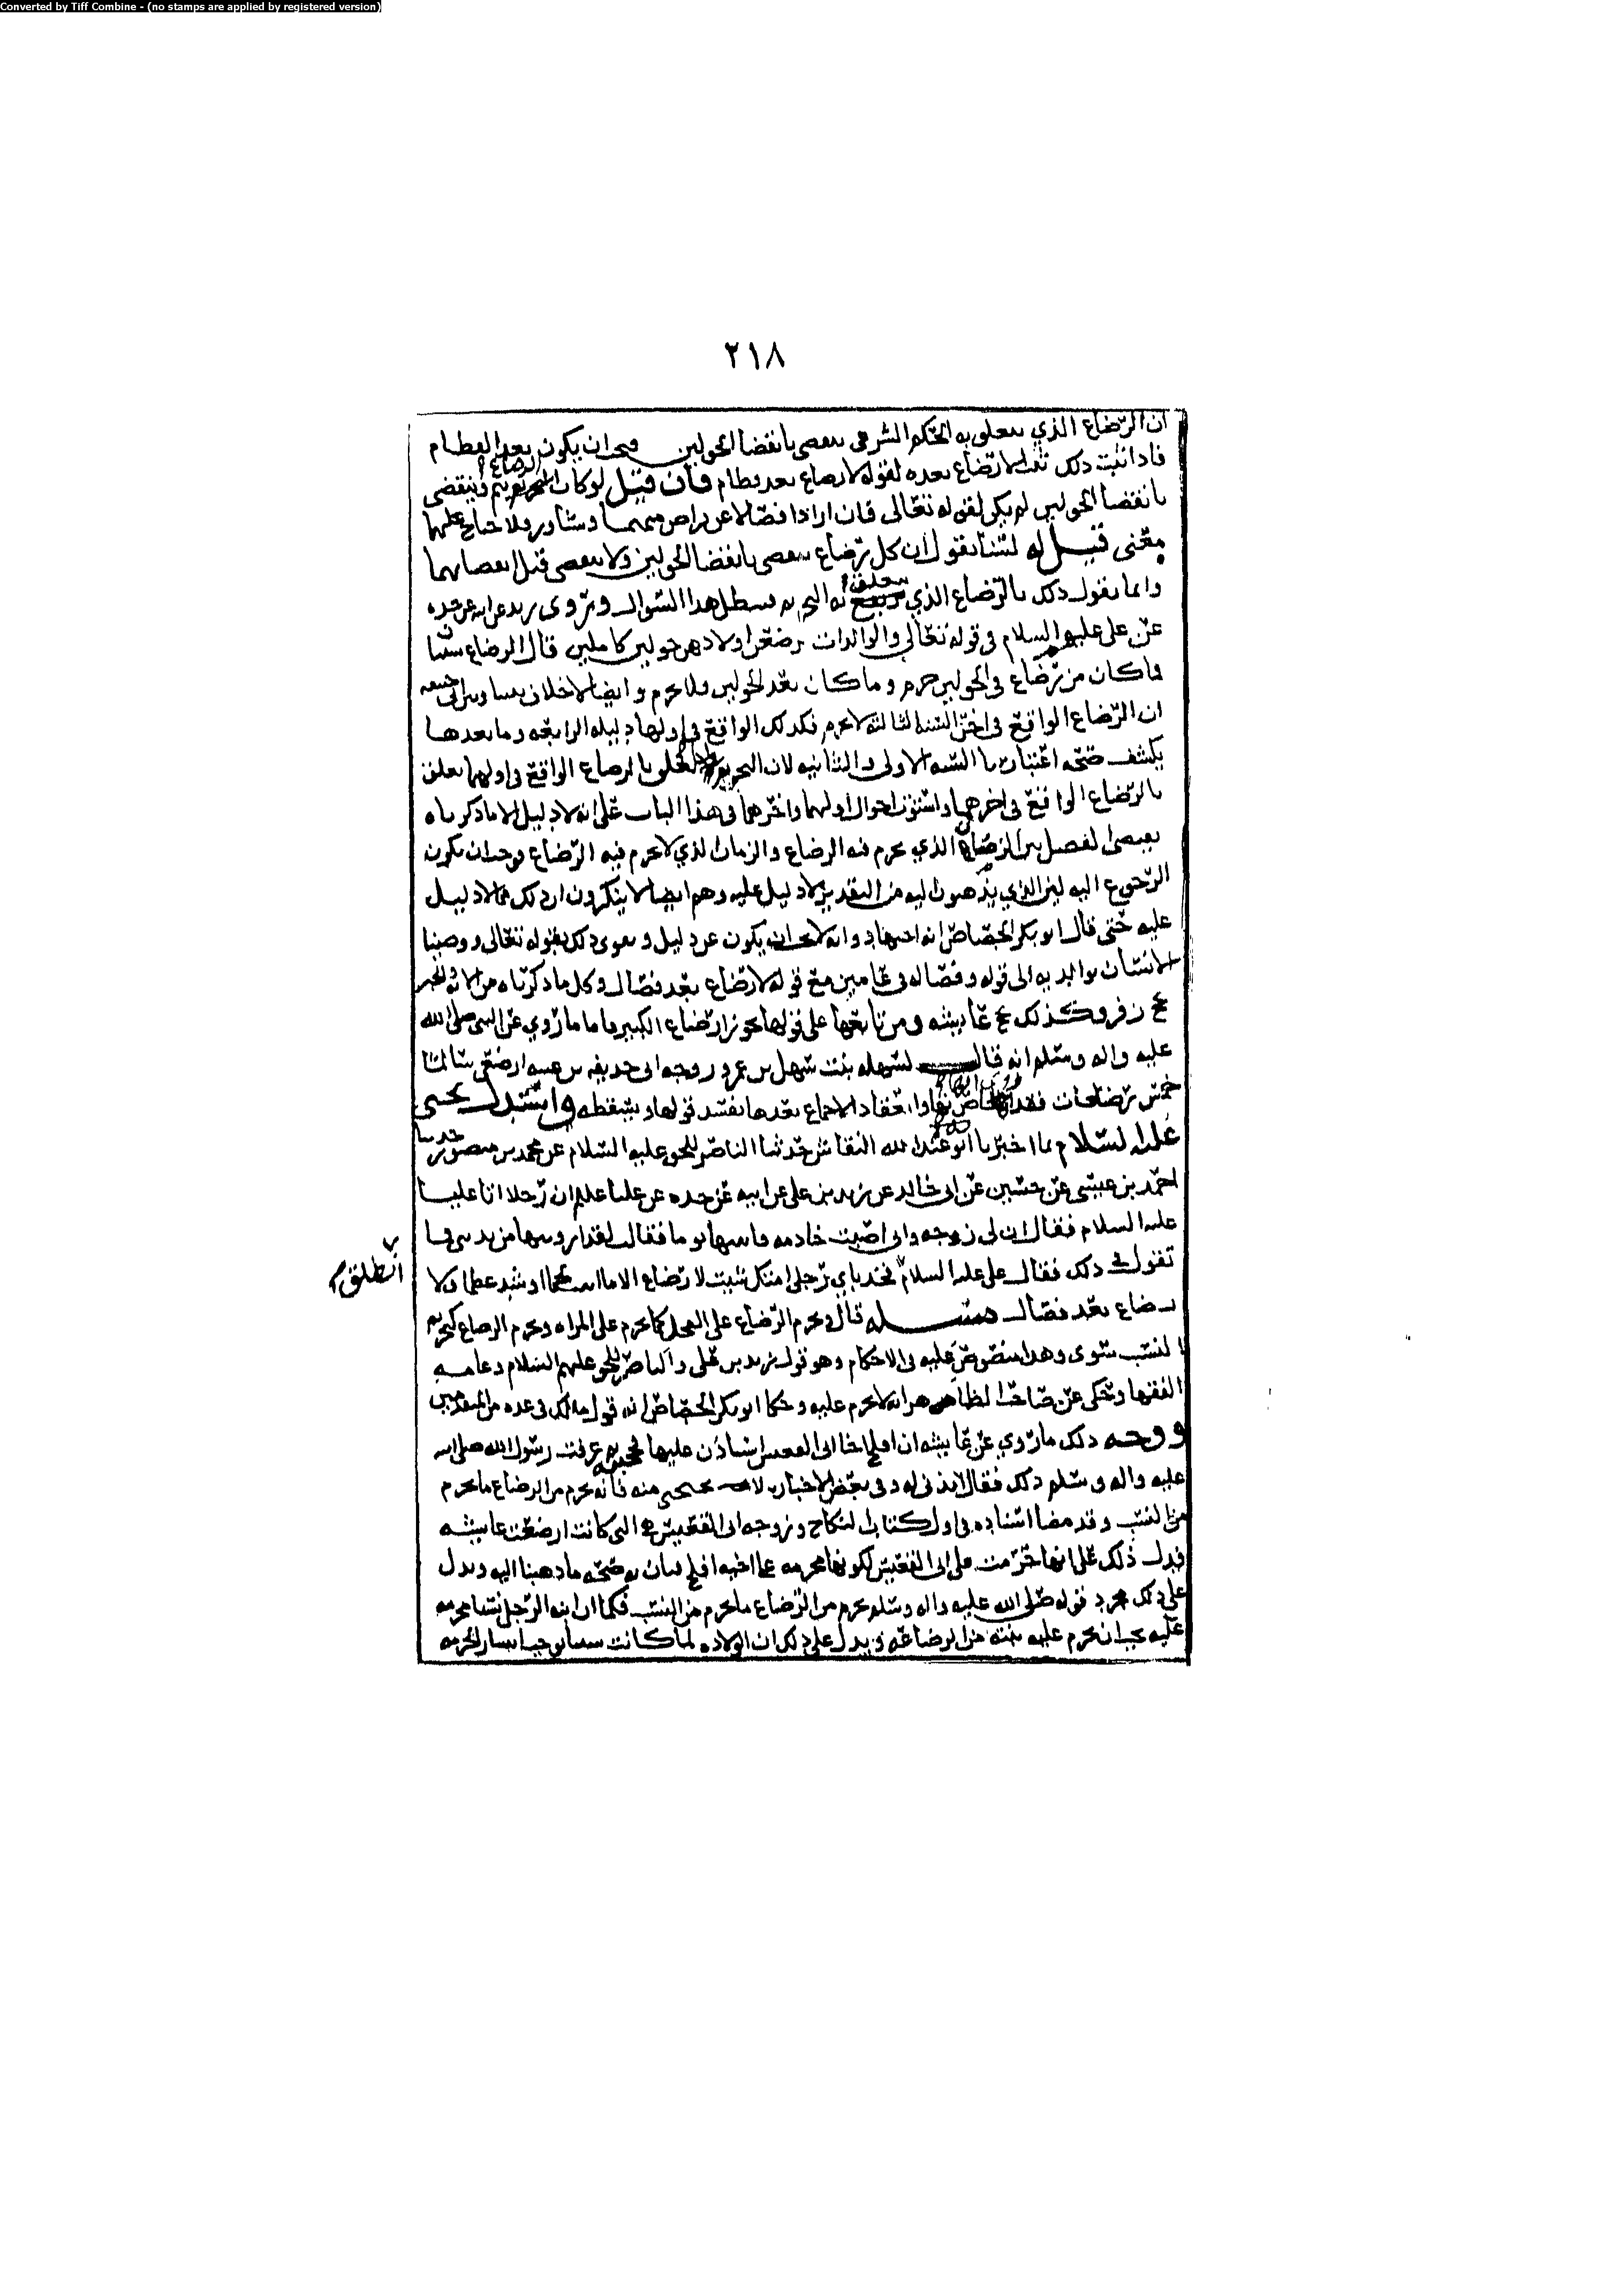 Converted by Tiff Combine - (no stamps are applied by registered version)
٢١٨
ان الرضاع الذي يتعلق به الحكم الشرعي ينقضي بانقضا الحولين ويجب ان يكون بعد الفطام
فاذا ثبت ذلك ثبت الا رضاع بعده لقوله لا رضاع بعد فطام فان قيل لو كان التحريم الرضاع يتم وينقضي
بانقضا الحولين لم يكن لقوله تعالى فان ارادا فصالا عن تراض منهما وتشاور فلا جناح عليهما
معنى قيل له لسنا نقول ان كل رضاع ينقضي بانقضا الحولين ولا ينقضي قبل انقضائهما
وانما نقول ذلك بالرضاع الذي يتعلق به التحريم فبطل هذا السوال وروى زيد عن ابيه عن جده
عن علي عليهم السلام في قوله تعالى والوالدات يرضعن اولادهن حولين كاملين قال الرضاع سنتان
فما كان من رضاع في الحولين حرم وما كان بعد الحولين فلا يحرم وايضا لا خلاف بيننا وبين ابي حنيفه
ان الرضاع الواقع في اخر السنه الثالثه لا يحرم فكذلك الواقع في اولها دليله الرابعه وما بعدها
يكشف صحه اعتبارنا السنه الاولى والثانيه لان التحريم لما تعلق بالرضاع الواقع في اولهما تعلق
بالرضاع الواقع في اخرهما واستوت احوال اولهما واخرهما في هذا الباب على انه لا دليل الا ما ذكرناه
يقتضي الفصل بين الزمان الذي يحرم فيه الرضاع والزمان الذي لا يحرم فيه الرضاع فوجب ان يكون
الرجوع اليه لان الذي يذهبون اليه من التقدير لا دليل عليه وهم ايضا لا ينكرون ان ذلك مما لا دليل
عليه حتى قال ابو بكر الجصاص انه اجتهاد وانه لا يجب ان يكون عن دليل ويقوي ذلك بقوله تعالى ووصينا
الانسان بوالديه الى قوله وفصاله في عامين مع قوله لا رضاع بعد فصال وكل ما ذكرناه من الايه والخبر
يحج زفر وكذلك يحج عايشه ومن تابعها على قولها بجواز ارضاع الكبير فاما ما روي عن النبي صلى الله
عليه واله وسلم انه قال لسهله بنت سهل بن عمرو زوجه ابي حذيفه بن عتبه ارضعي سالما
خمس رضعات فقد وانعقاد الاجماع بعدها يفسد قولها ويسقطه واستدل يحيى
عليه السلام بما اخبرنا ابو عبد الله النقاش حدثنا الناصر للحق عليه السلام عن محمد بن منصور حدثنا
احمد بن عيسى عن حسين عن ابي خالد عن زيد بن علي عن ابيه عن جده عن علي عليهم ان رجلا اتا عليا
عليه السلام فقال ان لي زوجه واني اصبت خادمه فاتيتها يوما فقالت لقد ارويتها من ثديي فما
تقول في ذلك فقال علي عليه السلام انطلق فخذ باي رجلي امتك شيت لا رضاع الا ما انبت لحما او شد عظما ولا
رضاع بعد فصال مسئله قال ويحرم الرضاع على الفحل كما يحرم على المراه ويحرم الرضاع كتحريم
النسب سوى وهذا منصوص عليه في الاحكام وهو قول زيد بن علي والناصر للحق عليهم السلام وعامه
الفقها وحكى عن صاحب الظاهر انه لا يحرم عليه وحكا ابو بكر الجصاص انه قول مالك في عده من المتقدمين
ووجه ذلك ما روي عن عايشه ان افلح اخا ابي القعيس استاذن عليها فحجبته فعرفت رسول الله صلى الله
عليه واله وسلم ذلك فقال ايذني له وفي بعض الاخبار لا تحتجبي منه فانه يحرم من الرضاع ما يحرم
من النسب وقد مضا اسناده في اول كتاب النكاح وزوجه ابي القعيس هي التي كانت ارضعت عايشه
فدل ذلك على انها حرمت على ابي القعيس لكونها محرمه على اخيه افلح فبان به صحه ما ذهبنا اليه ويدل
على ذلك مجرد قوله صلى الله عليه واله وسلم يحرم من الرضاع ما يحرم من النسب فكما ان ابنه الرجل نسبا محرمه
عليه يجب ان تحرم عليه بنته من الرضاعه ويدل على ذلك ان الولاده لما كانت سببا يوجب انتشار الحرمه
انطلق